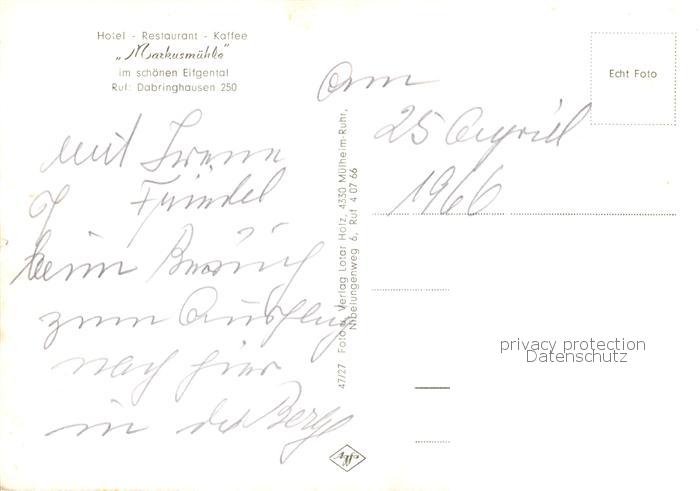 Hotel - Restaurant - Kaffee
„Markusmühle"
im schönen Eifgental
Ruf: Dabringhausen 250
mit Irene
Friedel
beim Besuch
zum Ausflug
nach hier
in die Berge
47/27 Foto u. Verlag Lotar Holz, 4330 Mülheim-Ruhr,
Nibelungenweg 6, Ruf 4 07 66
Agfa
am
25 April
1966
Echt Foto
privacy protection
Datenschutz